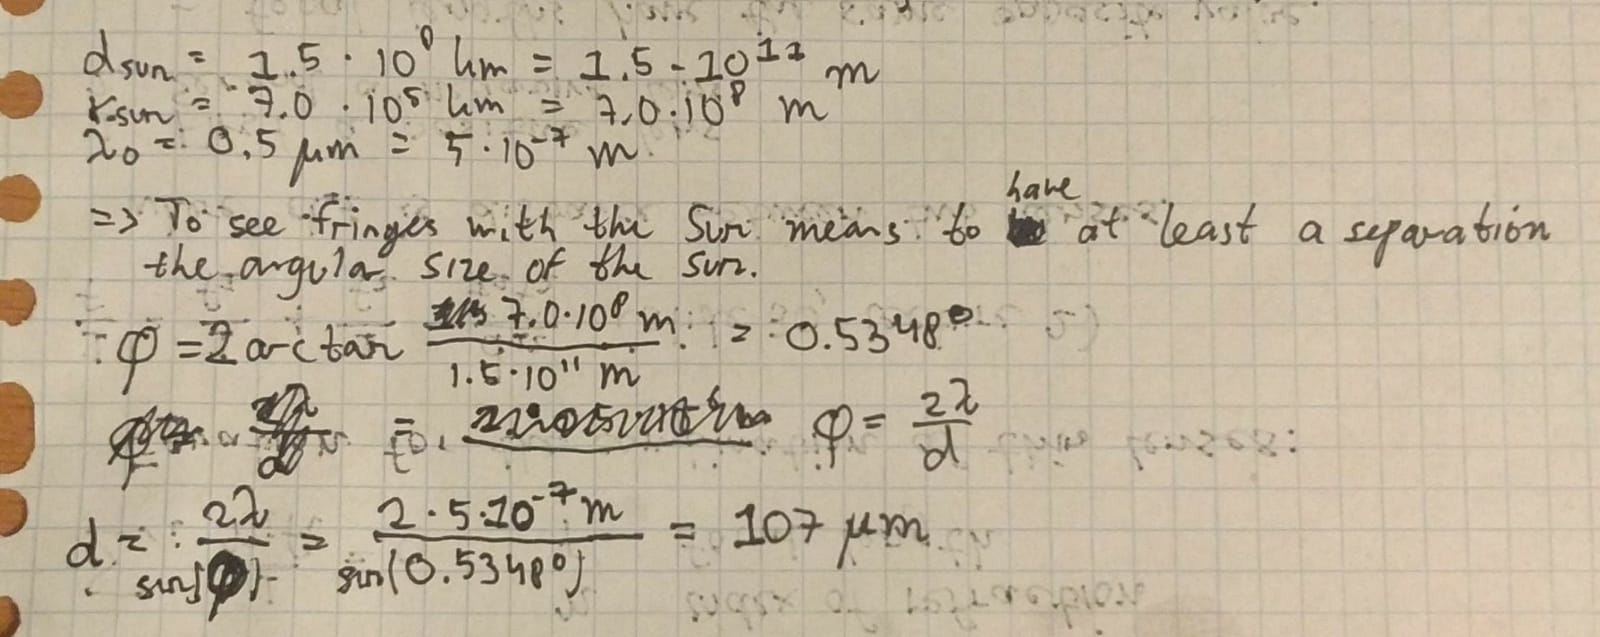 d sun = 1.5 · 10⁸ km = 1.5 · 10¹¹ m
r sun = 7.0 · 10⁵ km = 7.0 · 10⁸ m
λ₀ = 0.5 μm = 5 · 10⁻⁷ m
=> To see fringes with the Sun means to have at least a separation
the angular size of the sun.
φ = 2 arctan (7.0·10⁸ m / 1.5·10¹¹ m) = 0.5348°
φ = 2λ / d
d = 2λ / sin(φ) = 2·5·10⁻⁷ m / sin(0.5348°) = 107 μm